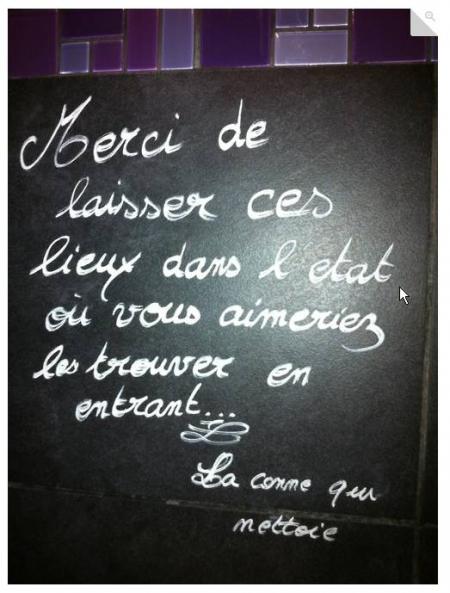 Merci de
laisser ces
lieux dans l'etat
où vous aimeriez
les trouver en
entrant...
La conne qui
nettoie